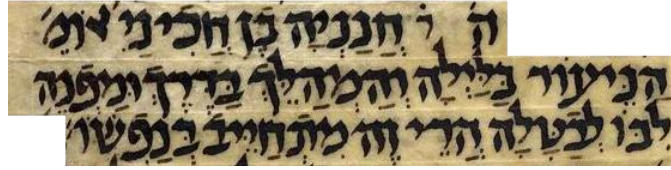 ה ר' חנניה בן חכיניי אומ'
הניעור בלילה והמהלך בדרך ומפנה
לבו לבטלה הרי זה מתחייב בנפשו